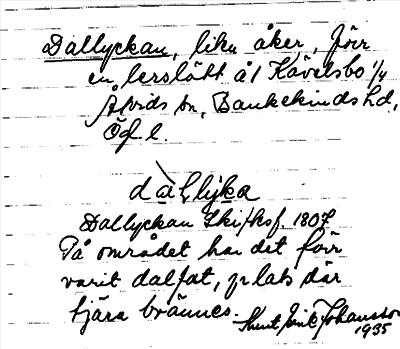 Dallyckan, liten åker, förr
en lerslått å 1 Hävelsbo 1/4
Åtvids sn, Bankekinds hd,
Ög l.
dalļlyka
Dallyckan Skifksf. 1807
På området har det förr
varit dalfat, plats där
tjära brännes.
Knut Erik Johansson
1935